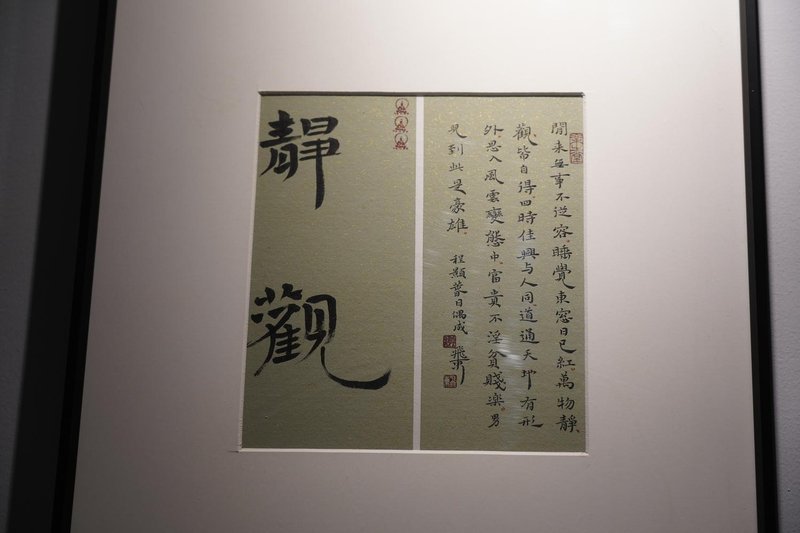 閒来無事不從容睡覺東窓日已紅萬物靜
觀皆自得四時佳興与人同道通天地有形
外思入風雲變態中富貴不淫貧賤樂男
児到此是豪雄 程顥春日偶成
靜觀